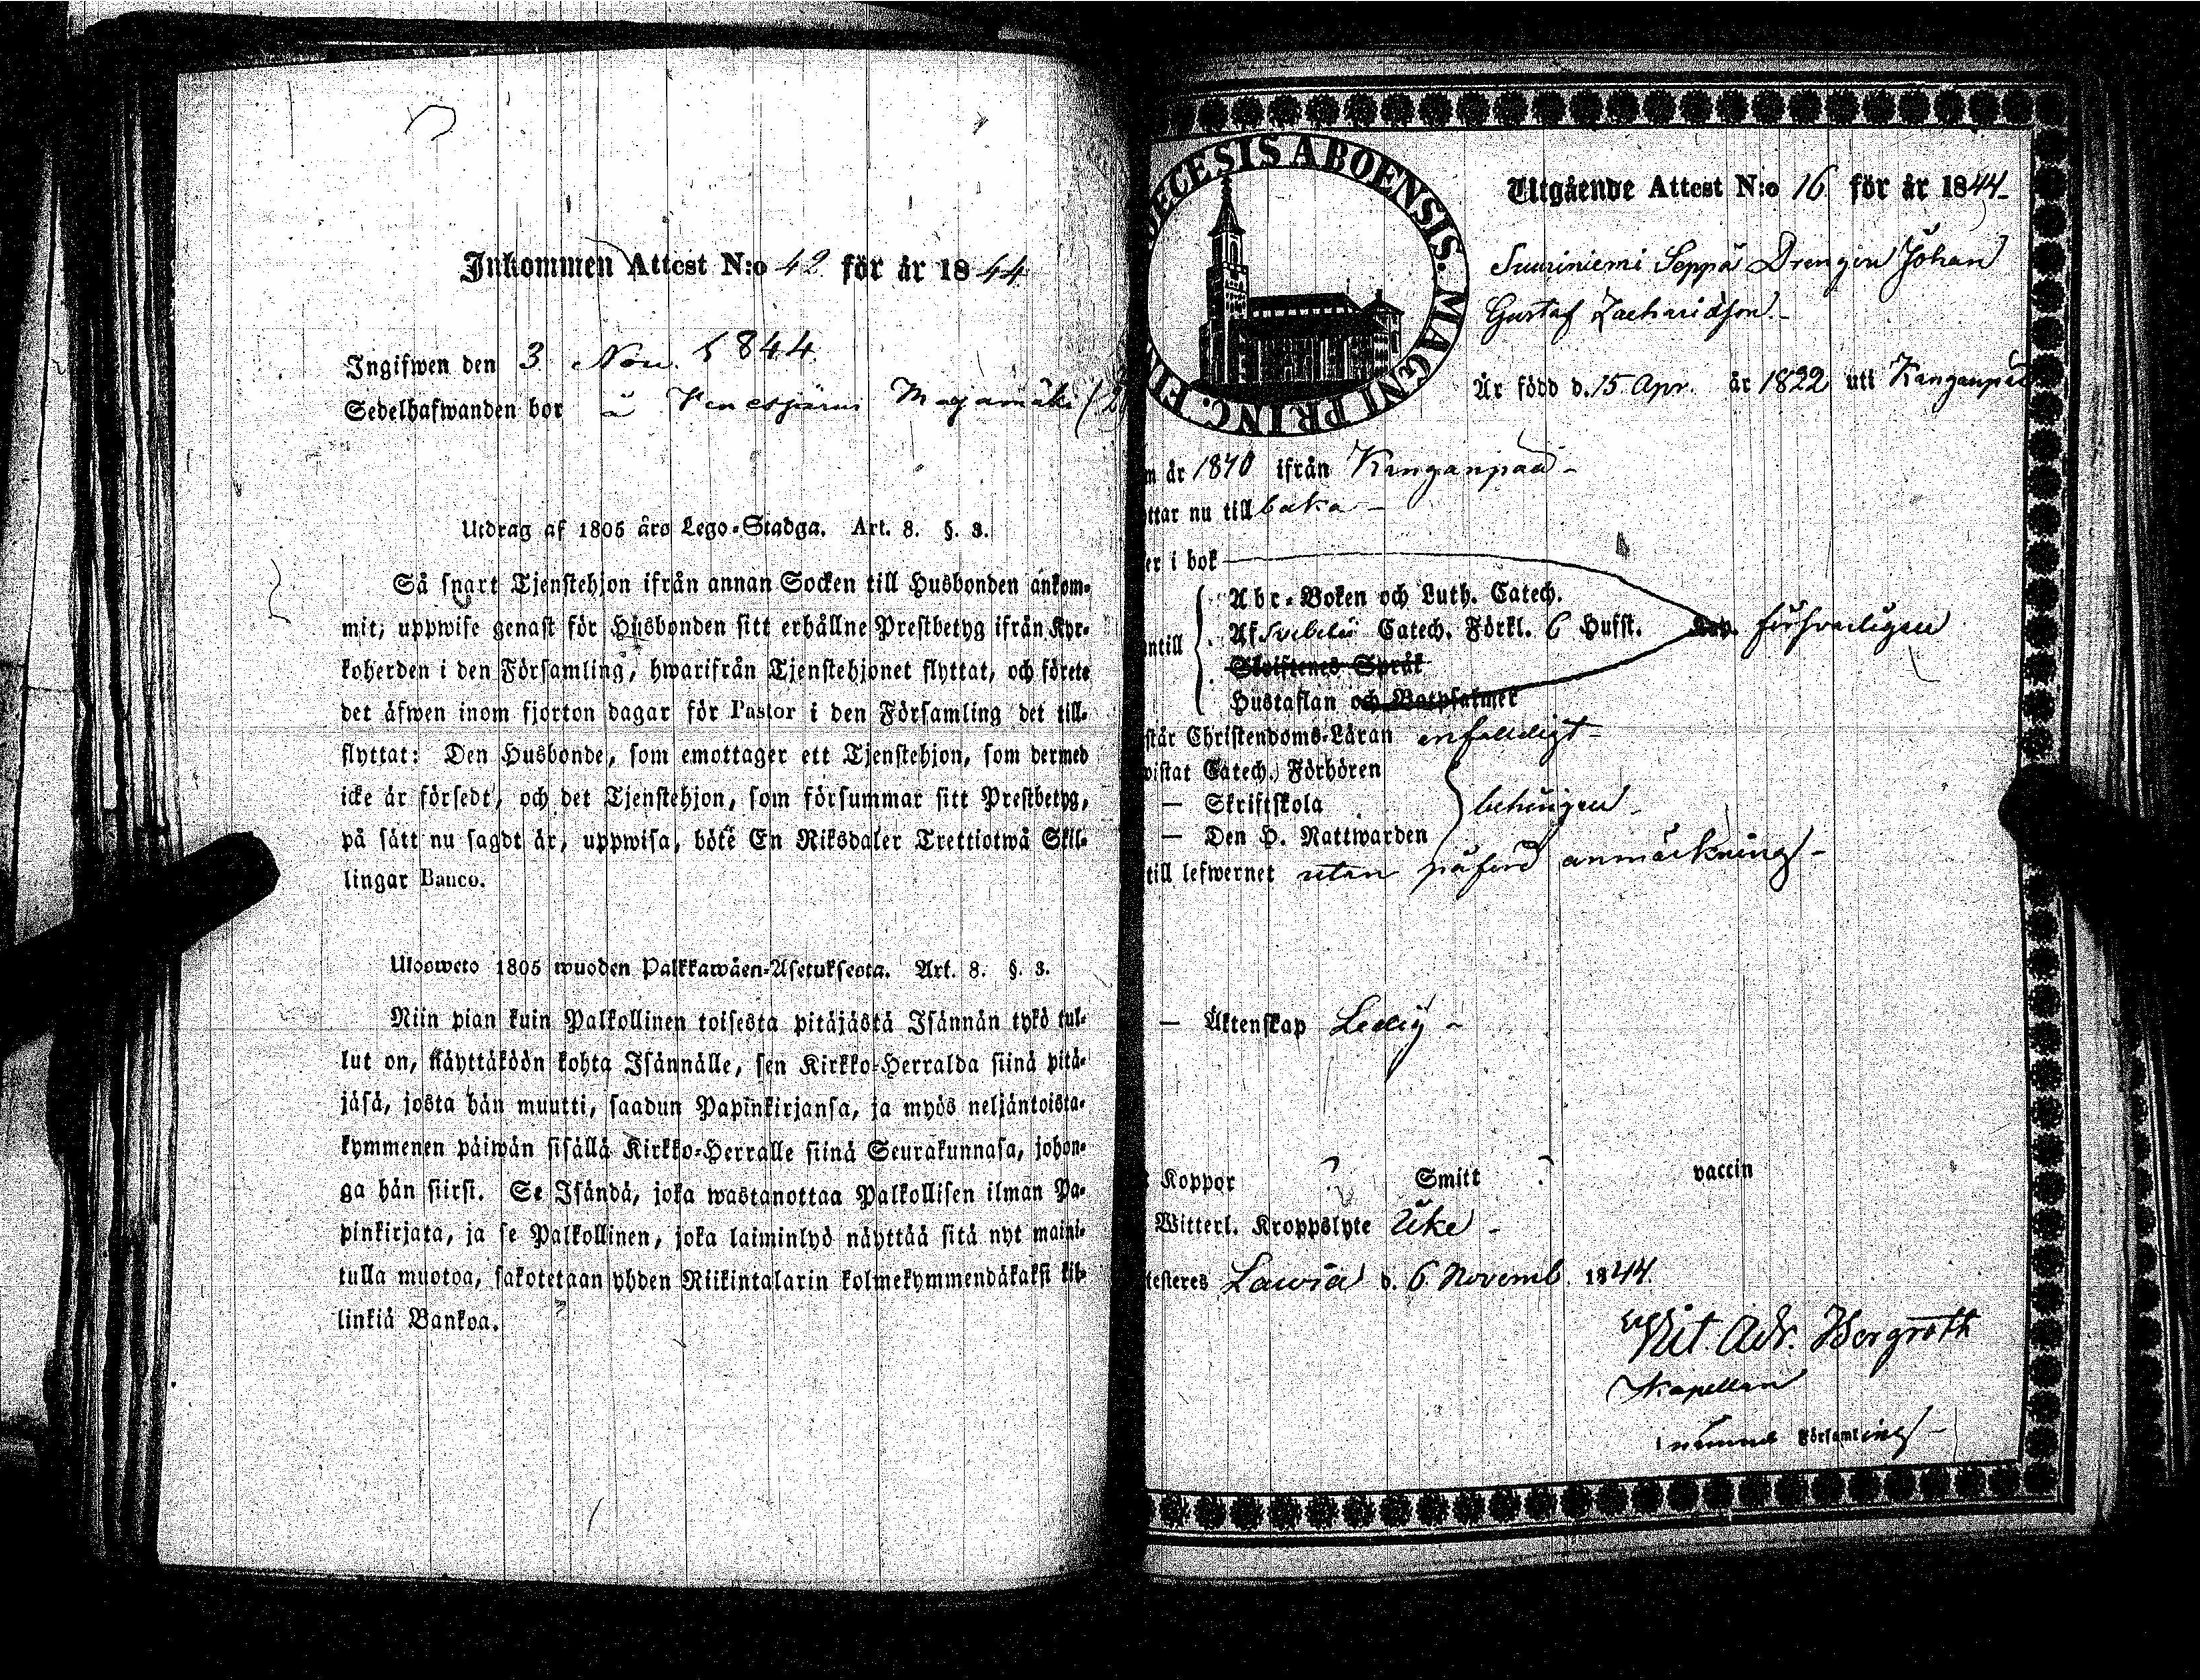 Inkommen Attest N:o 42 för år 1844
Ingifwen den 3 Nov. 1844.
Sedelhafwanden bor å Venesjärvi Majamäki
Utdrag af 1805 års Lego-Stadga. Art. 8. §. 3.
Så snart Tjenstehjon ifrån annan Socken till Husbonden ankom-
mit, uppwise genast för Husbonden sitt erhållne Prestbetyg ifrån Kyr-
koherden i den Församling, hwarifrån Tjenstehjonet flyttat, och förete
det äfwen inom fjorton dagar för Pastor i den Församling det till-
flyttat: Den Husbonde, som emottager ett Tjenstehjon, som dermed
icke är försedt, och det Tjenstehjon, som försummar sitt Prestbetyg,
på sätt nu sagdt är, uppwisa, böte En Riksdaler Trettiotwå Skil-
lingar Banco.
Ulosweto 1805 wuoden Palkkawäen-Asetuksesta. Art. 8. §. 3.
Niin pian kuin Palkollinen toisesta pitäjästä Isännän tykö tul-
lut on, näyttäköön kohta Isännälle, sen Kirkko-Herralda siinä pitä-
jäsä, josta hän muutti, saadun Papinkirjansa, ja myös neljäntoista-
kymmenen päiwän sisällä Kirkko-Herralle siinä Seurakunnasa, johon-
ga hän siirsi. Se Isändä, joka wastanottaa Palkollisen ilman Pa-
pinkirjata, ja se Palkollinen, joka laiminlyö näyttää sitä nyt maini-
tulla muotoa, sakotetaan yhden Riikintalarin kolmekymmendäkaksi kil-
linkiä Bankoa.
DECESIS ABOENSIS. MAGNI PRINC. FIN
Utgående Attest N:o 16 för år 1844
Suuriniemi Seppä Drengen Johan
Gustaf Zachariasson
Är född d. 15 Apr. år 1822 uti Kanganpää
m år 1840 ifrån Kanganpää
ttar nu tillbaka
er i bok
Abc-Boken och Luth. Catech.
ntill Af Svebelii Catech. Förkl. 6 Hufst. försvarligen
Skriftenes Språk
Hustaflan och Botpsalmer
står Christendoms-Läran enfaldigt
wistat Catech. Förhören
— Skriftskola behörigen
— Den H. Nattwarden
till lefwernet utan påförd anmärkning
— Äktenskap Ledig
Koppor ? Smitt ? vaccin
Witterl. Kroppslyte Icke
testeres Lawia d. 6 Novemb. 1844.
Vit. Adr. Bergroth
Kapellan
i nämnde Församling